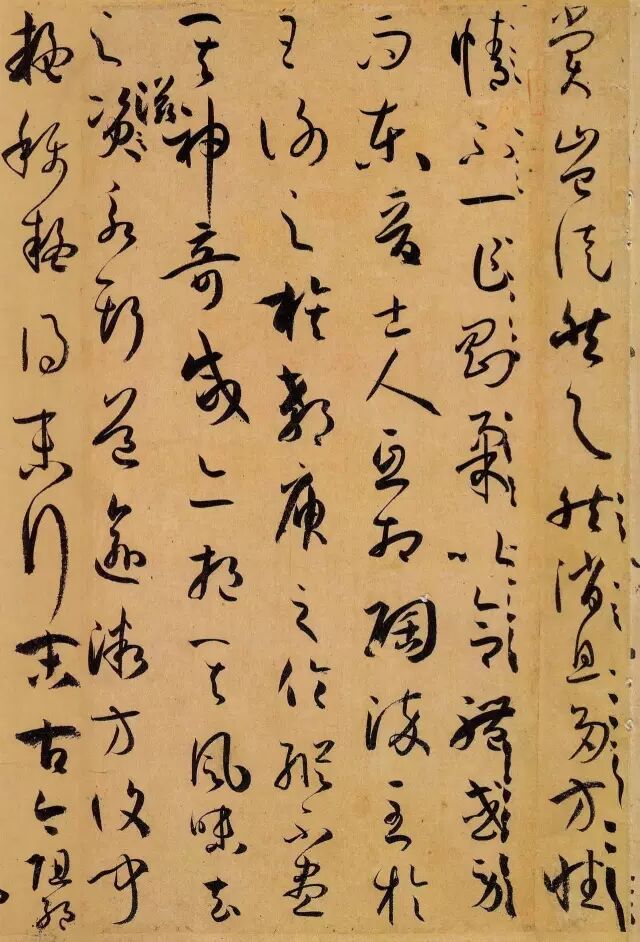 賞豈徒然與然消息多方性
情不一乍剛柔以合體忽勞
而東晉士人互相陶染至於
王謝之族郗庾之倫縱不盡
其神奇咸亦挹其風味去
之資滋永斯道愈微方復聞
疑稱疑得末行末古今阻絕